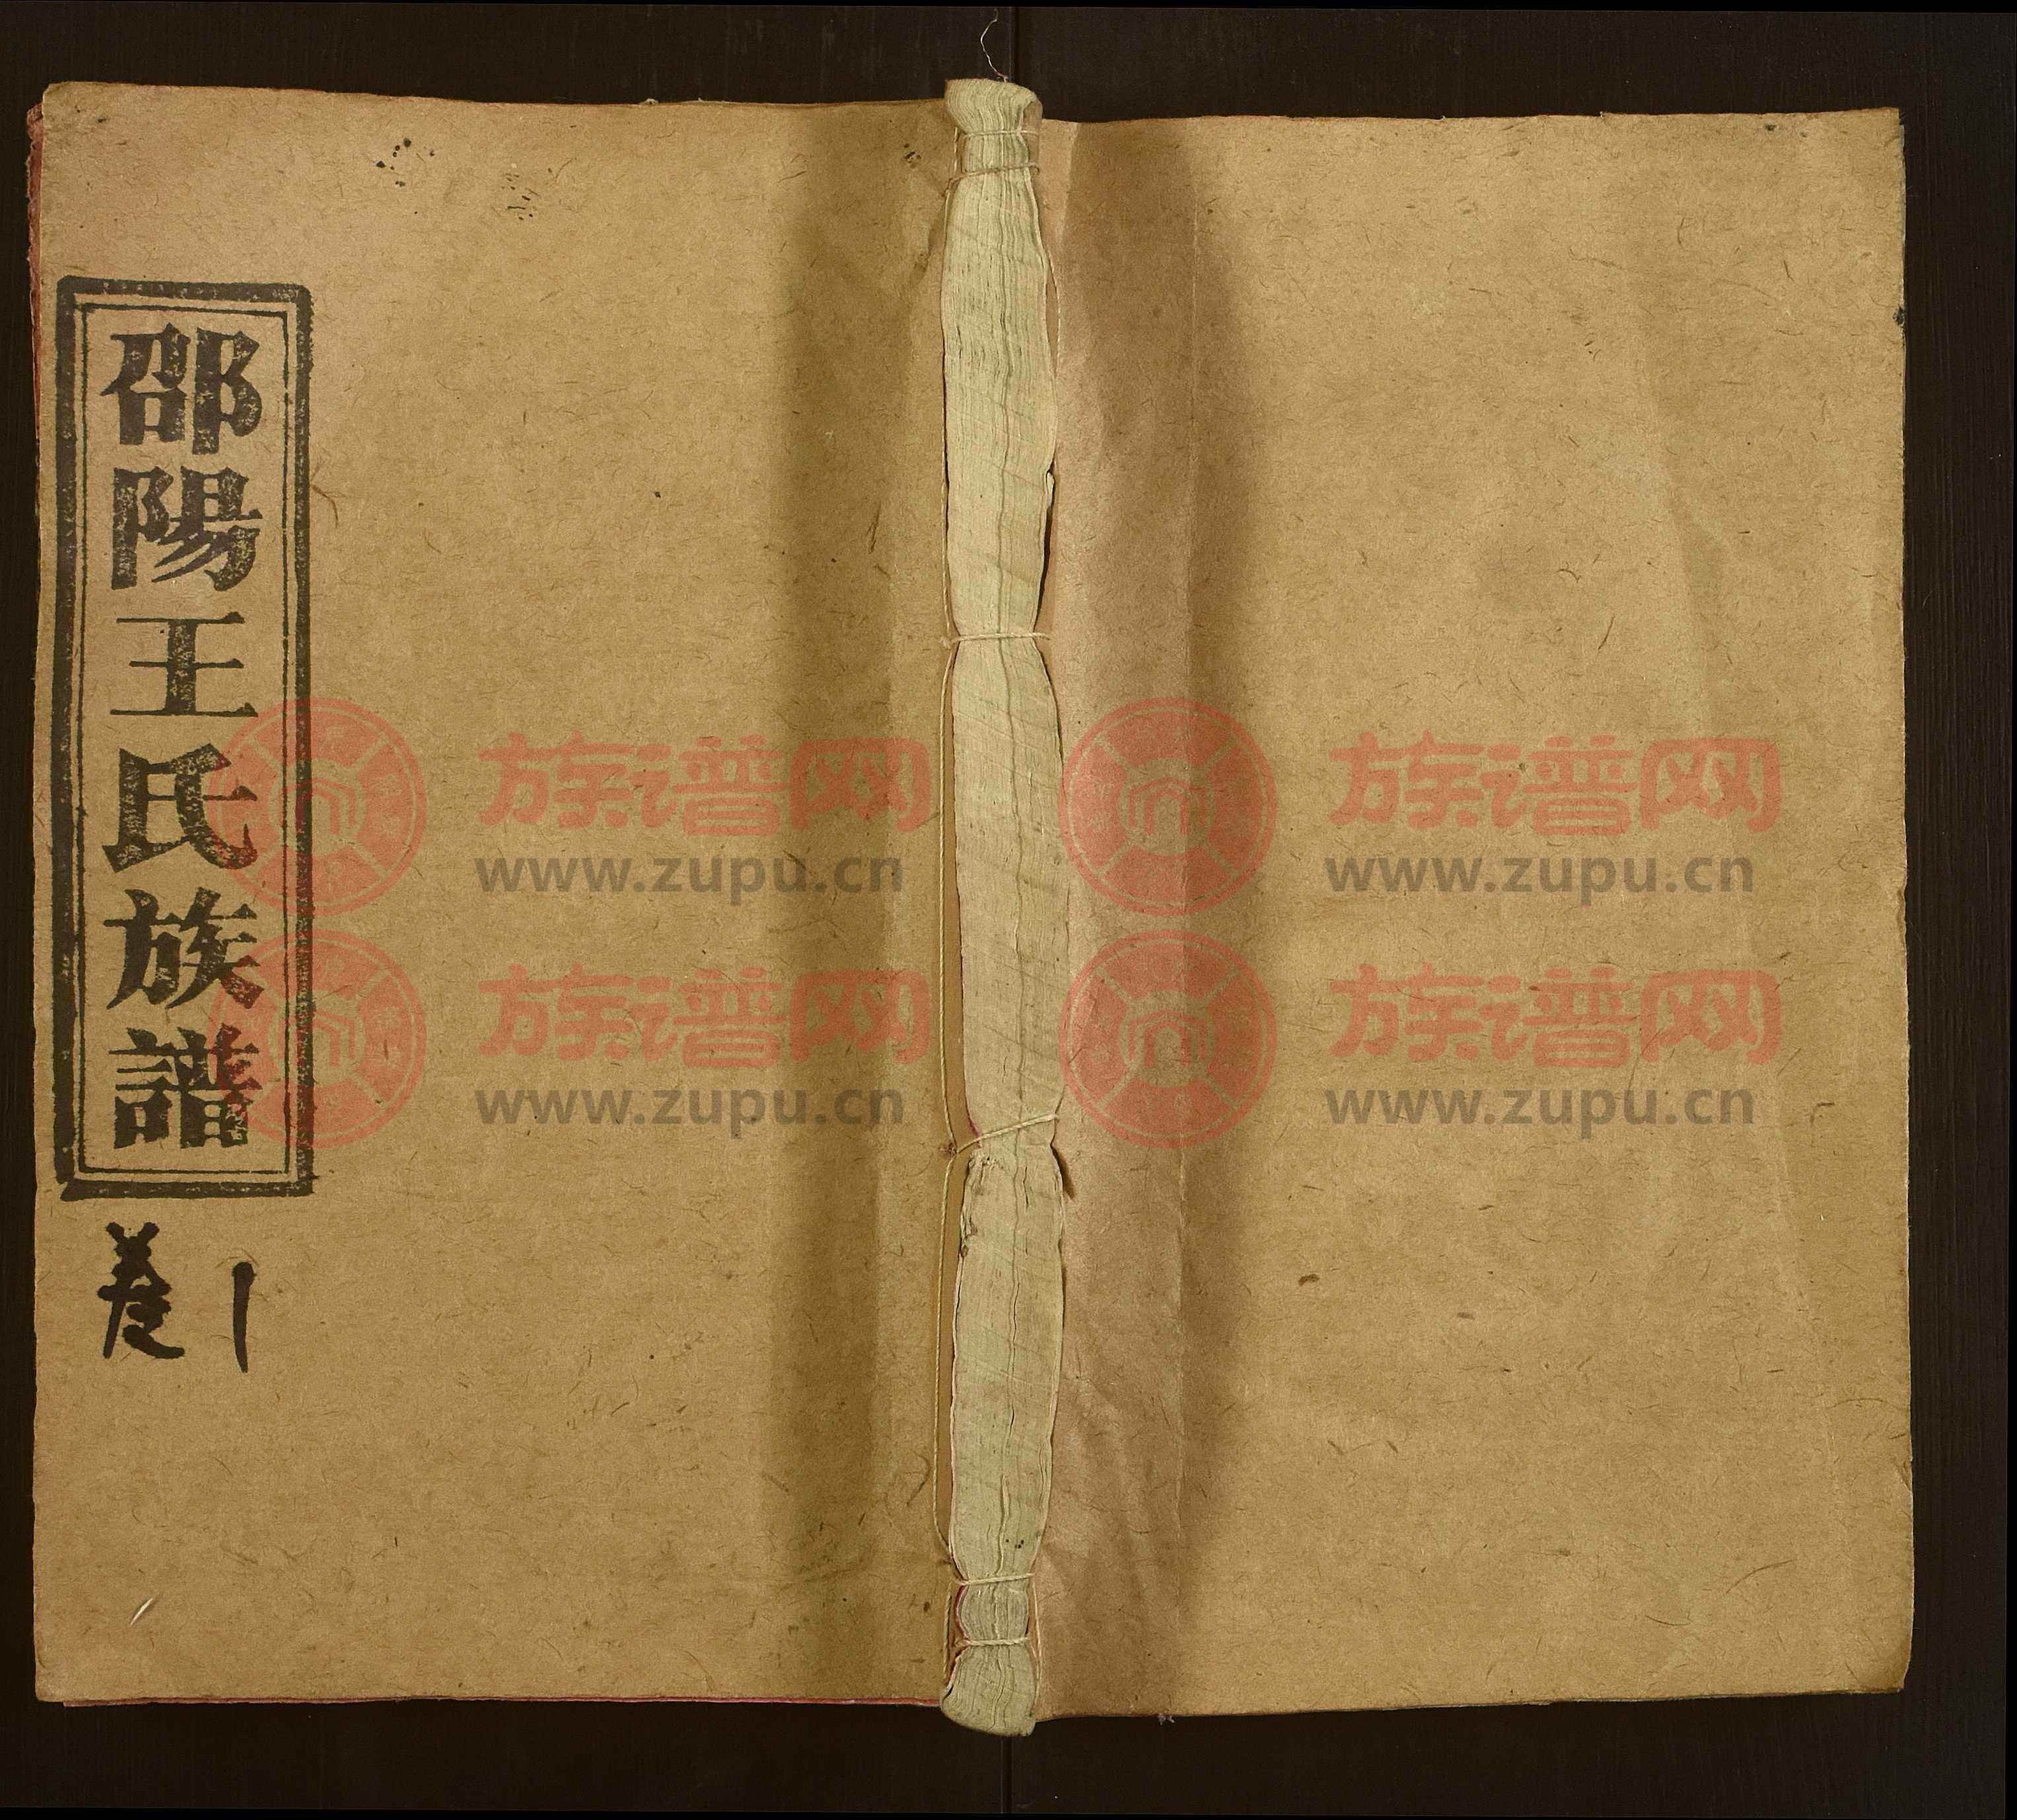 邵陽王氏族譜
卷
族谱网
www.zupu.cn
族谱网
www.zupu.cn
族谱网
www.zupu.cn
族谱网
www.zupu.cn